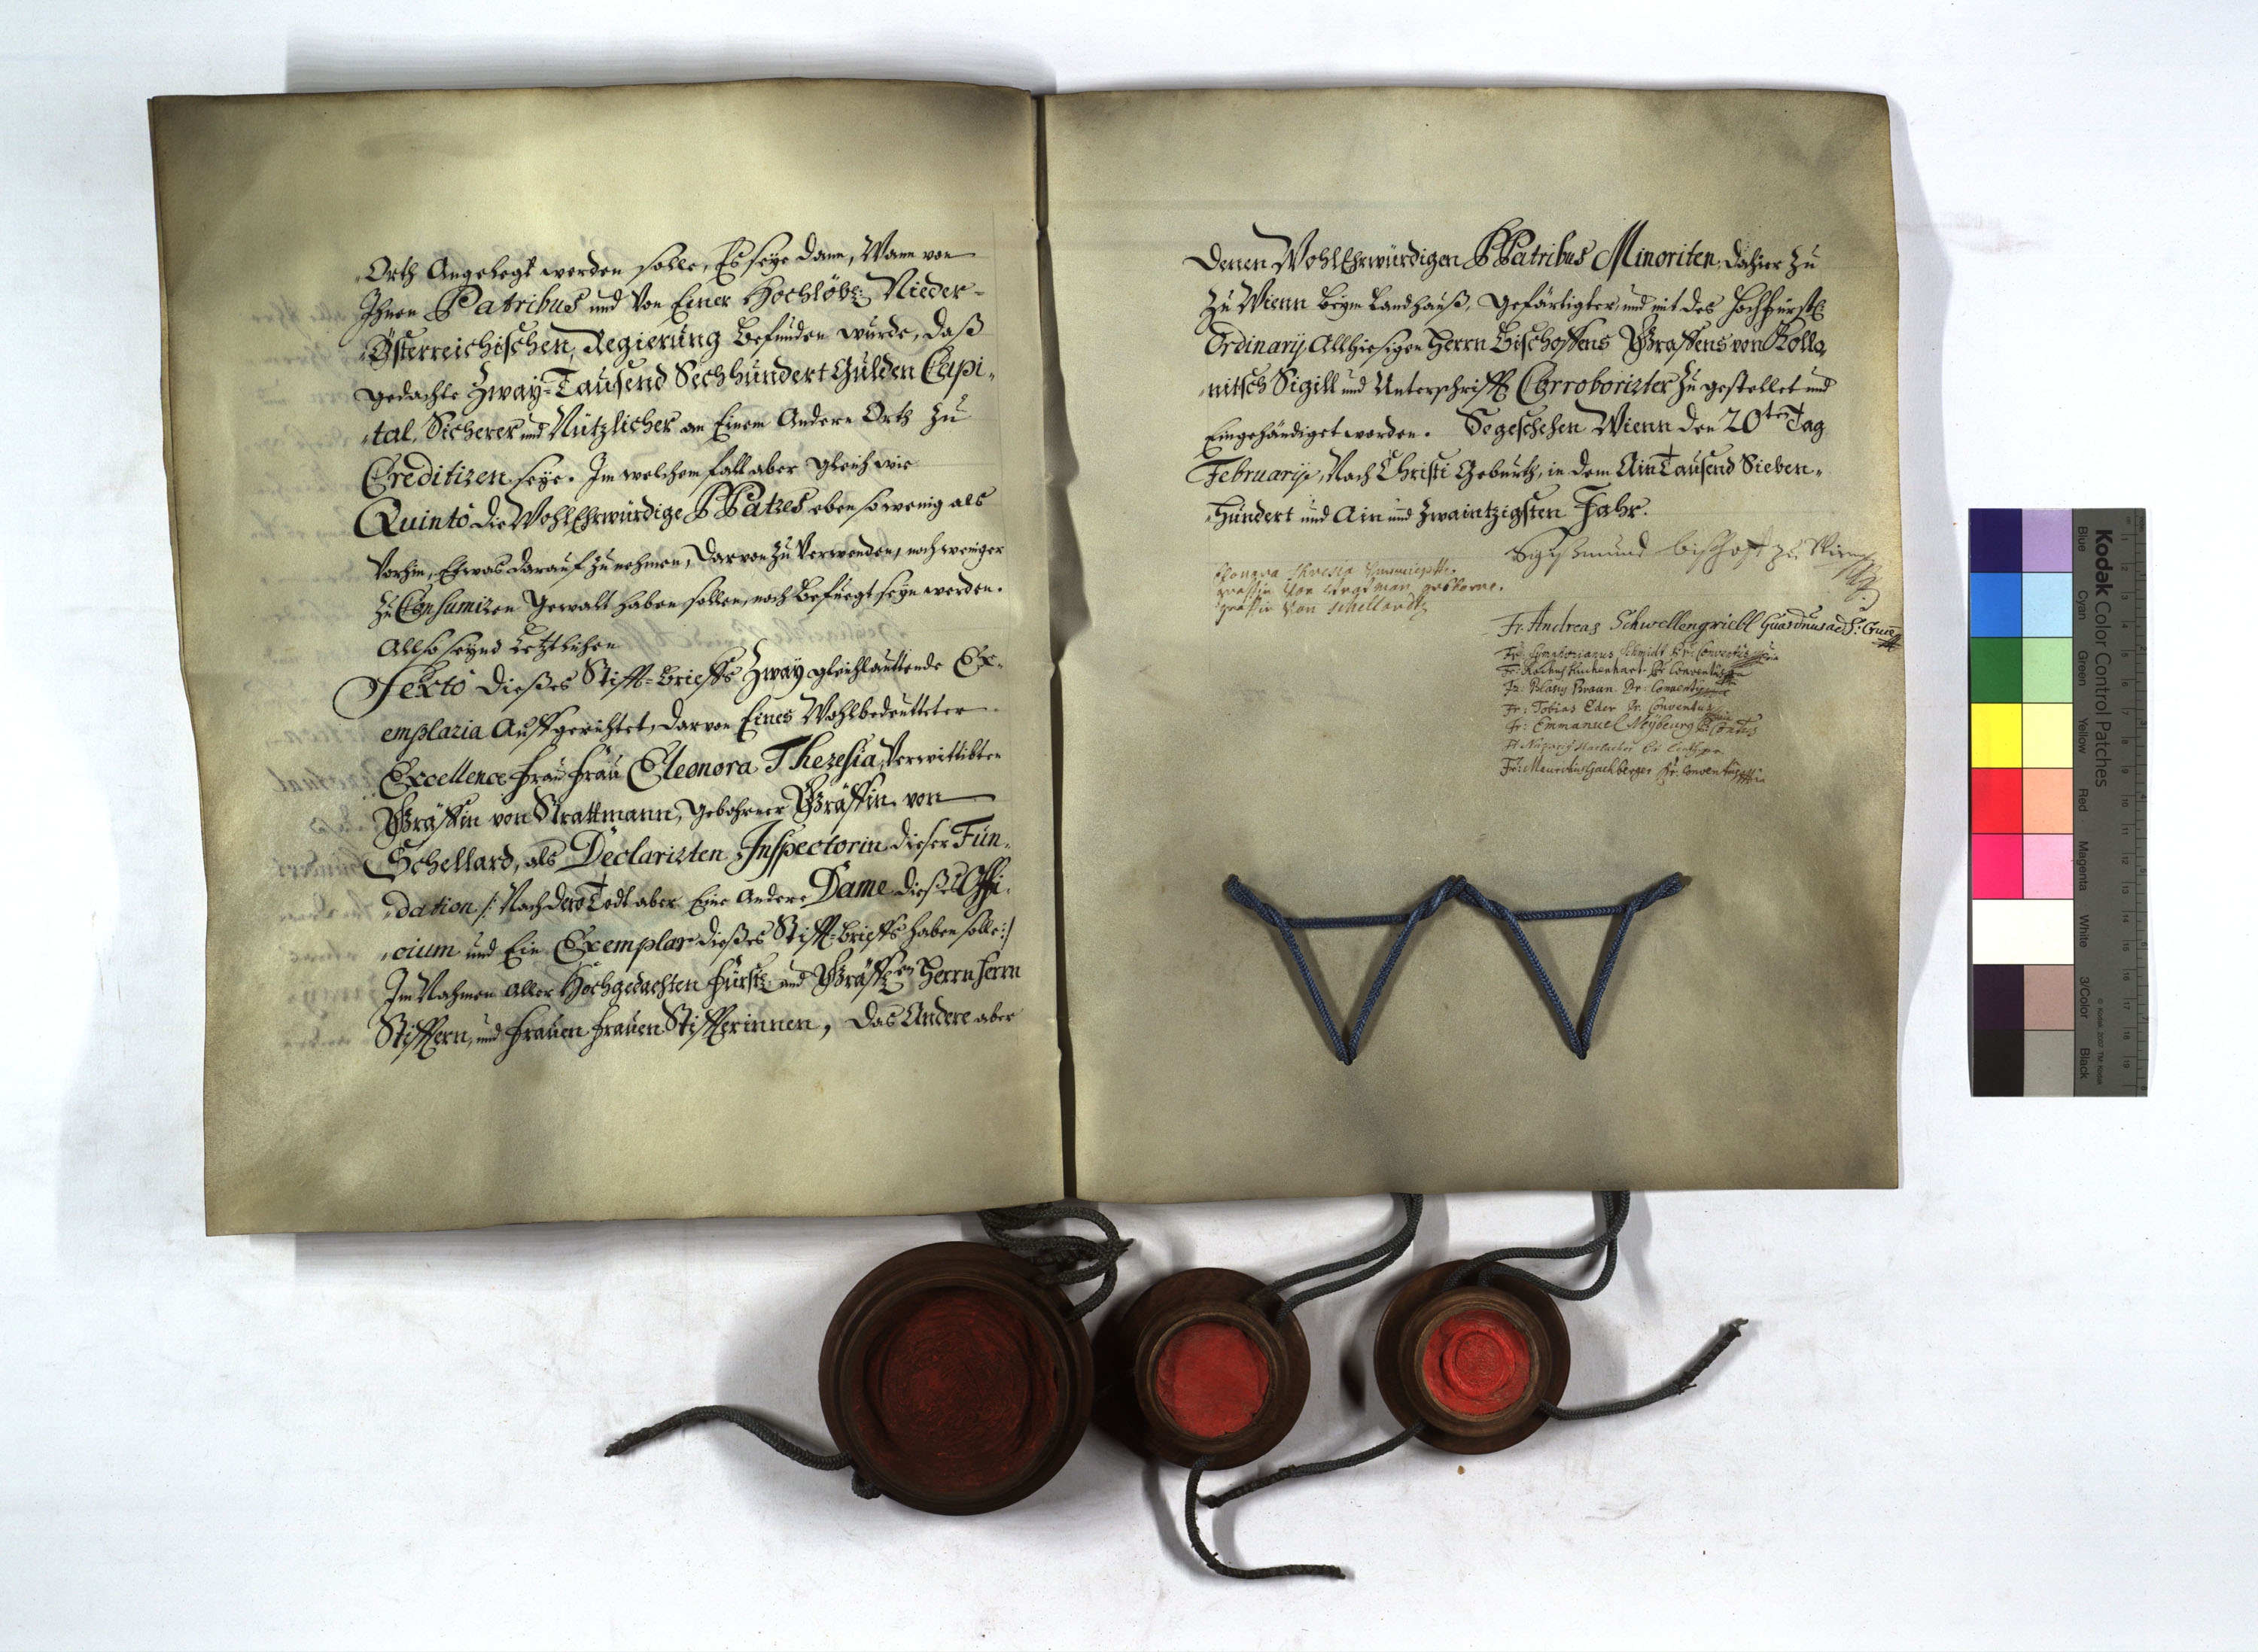 Orth Angelegt werden solle, Es seye dann, Wann von
Ihnen Patribus und Von Einer Hochlöbl: Nieder-
Österreichischen Regierung Befunden wurde, daß
gedachte Zway-Tausend Sechhundert Gulden Capi-
tal, Sicherer und Nützlicher an Einem Andern Orth zu
Creditiren seye. Im welchem fall aber gleich wie
Quintò die WohlEhrwürdige PPatres eben so wenig als
Vorhin, Etwas darauf zu nehmen, darvon zu Verwenden, noch weniger
zu Consumiren Gewalt haben sollen, noch Befuegt seyn werden.
Allso seynd Letztlichen
Sextò Dießes Stifft-Brieffs Zway gleichlauttende Ex-
emplaria Auffgerichtet, darvon Eines Wohlbedeutteter
Excellence Frau Frau Eleonora Theresia, Verwittibten
Gräffin von Strattmann, Gebohrner Gräffin von
Schellard, als Declarirten Inspectorin dieser Fun-
dation /: Nach dero Todt aber Eine Andere Dame dießes Offi-
cium und Ein Exemplar dießes Stifft-Brieffs haben solle :/
Im Nahmen Aller Hochgedachten Fürstl: und Gräffl:en Herrn Herrn
Stifftern, und Frauen Frauen Stiffterinnen, Das Andere aber
Denen WohlEhrwürdigen PPatribus Minoriten, dahier zu
Zu Wienn Beym Landhauß, Gefärtigter, und mit des Hochfürstl:
Ordinarij Allhiesigen Herrn Bischoffens Graffens von Kollo-
nitsch Sigill und Unterschrifft Corroborirter Zugestellet und
Eingehändiget worden. So geschehen Wienn den 20ten Tag
Februarij, Nach Christi Geburth, in dem Ain Tausend Sieben-
Hundert und Ain und Zwaintzigsten Jahr.
Sigismund bischoff zu Wienn
Eleonora Theresia
graffin Von Stratman geborne
grafin Von Schellardt
Fr. Andreas Schwellengriebl Guardianus ad S: Crucem
Fr: Symphorianus Schmidt Pr: Conventus
Fr: Rochus Kuchenhart Pr Conventus
Fr: Blasius Braun Pr: Conventus
Fr: Tobias Eder Pr: Conventus
Fr: Emmanuel Neyburg Pr: Contus
Fr:
Fr: Mauritius Gachberger Pr: Conventus
Kodak Color Control Patches
Blue Cyan Green Yellow Red Magenta White 3/Color Black
© Kodak, 2007 TM: Kodak